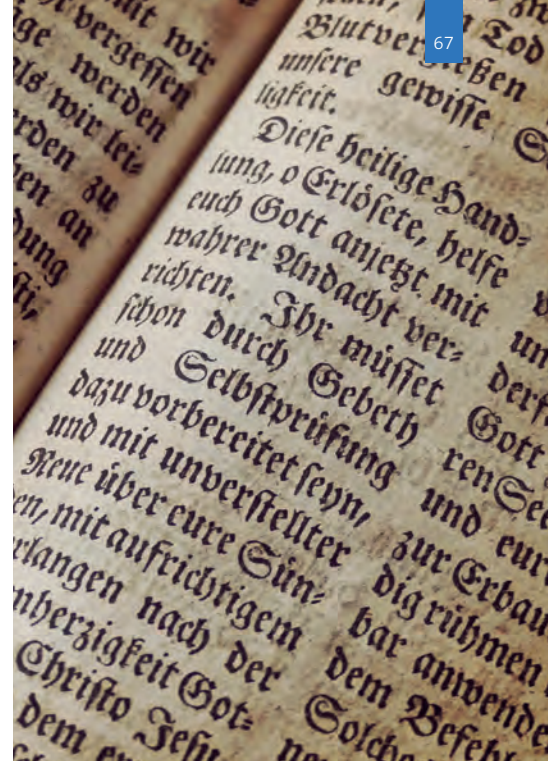 mit wir
vergeſſen
werden
als wir lei⸗
zu
an
67
Tod
unſere gewiſſe
ligkeit.
Dieſe heilige Hand⸗
lung, o Erlöſete, helfe
euch Gott anjetzt mit
wahrer Andacht ver⸗
richten. Ihr müſſet
ſchon durch Gebeth
und Selbſtprüfung
dazu vorbereitet ſeyn,
und mit unverſtellter
Reue über eure Sün⸗
en, mit aufrichtigem
rlangen nach der
mherzigkeit Got⸗
Chriſto Jeſu
dem
un
derf
Gott
ren See
und eur
zur Erbau
dig rühmen
bar anwende
dem Befehl
Solche